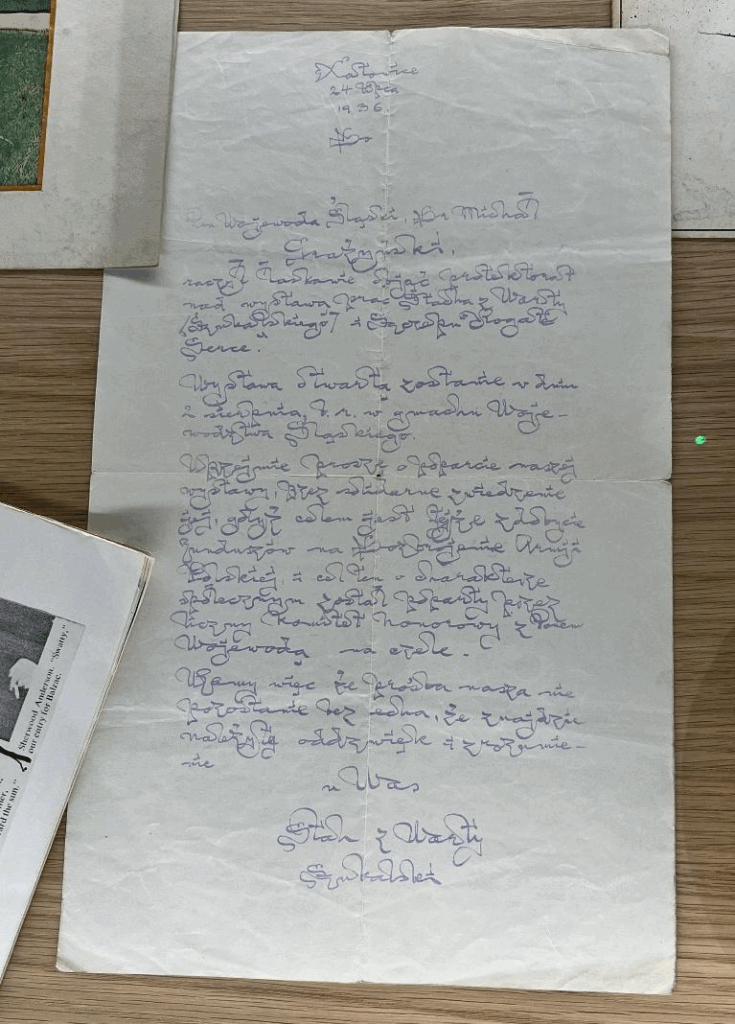 Katowice
24 lipca
1936.
Pan Wojewoda Śląski, Dr Michał
Grażyński,
raczył łaskawie objąć protektorat
nad wystawą prac Stacha z Warty
(Szukalskiego) i Szczepu "Rogate
Serce."
Wystawa otwartą zostanie w dniu
2 sierpnia, b.r. w gmachu Woje-
wództwa Śląskiego.
Uprzejmie proszę o poparcie naszej
wystawy, przez solidarne zwiedzenie
jej, gdyż celem jest jej że zdobycie
funduszów na Dozbrojenie Armji
Polskiej, i cel ten o charakterze
społecznym został poparty przez
liczny Komitet Honorowy z Panem
Wojewodą na czele.
Ufamy więc że prośba nasza nie
pozostanie bez echa, że znajdzie
należytę oddźwięk i zrozumie-
nie
u Was
Stach z Warty
Szukalski
Sherwood Anderson. "Swatty,"
our entry for Balzac.
ard the sun."